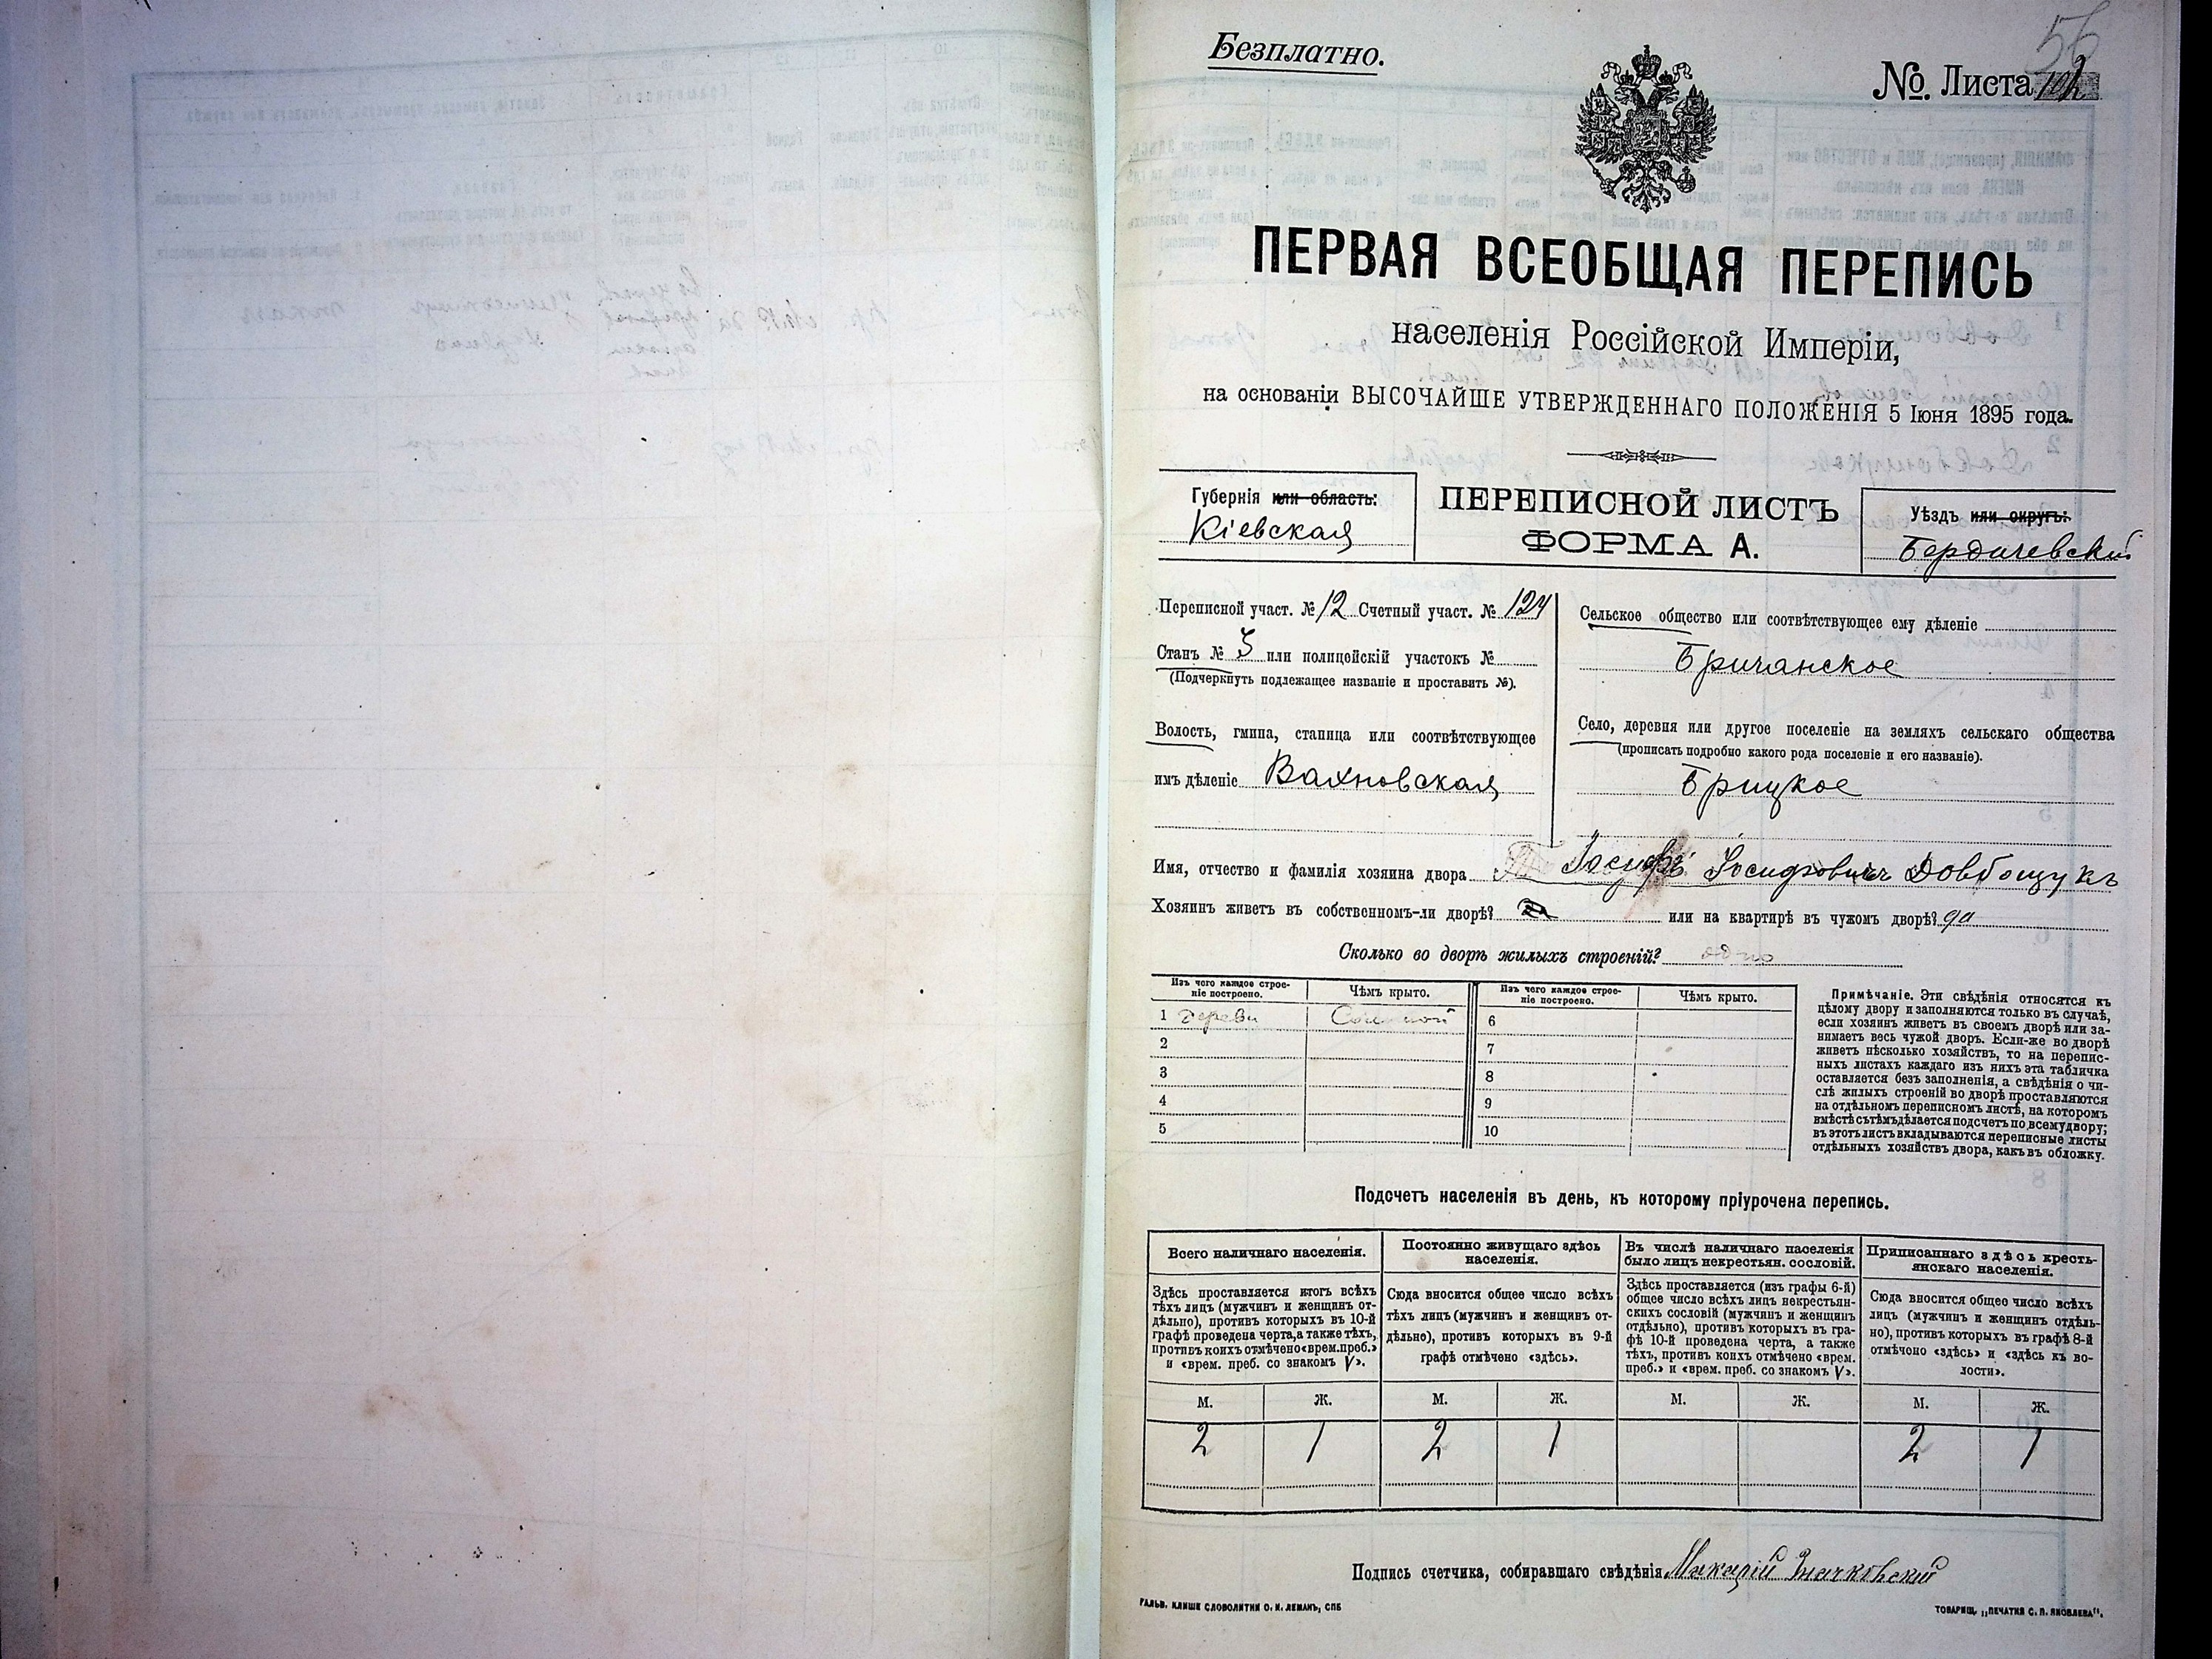 56
Безплатно.
№ Листа 102
ПЕРВАЯ ВСЕОБЩАЯ ПЕРЕПИСЬ
населенія Россійской Имперіи,
на основаніи ВЫСОЧАЙШЕ УТВЕРЖДЕННАГО ПОЛОЖЕНІЯ 5 Іюня 1895 года.
Губернія или область:
Кіевская
ПЕРЕПИСНОЙ ЛИСТЪ
ФОРМА А.
Уѣздъ или округъ:
Бердичевский
Переписной участ. № 12 Счетный участ. № 124
Станъ № 3 или полицейскій участокъ №
(Подчеркнуть подлежащее названіе и проставить №).
Волость, гмина, станица или соотвѣтствующее
имъ дѣленіе Вахновская
Сельское общество или соотвѣтствующее ему дѣленіе
Бричанское
Село, деревня или другое поселеніе на земляхъ сельскаго общества
(прописать подробно какого рода поселеніе и его названіе).
Брицкое
Имя, отчество и фамилія хозяина двора Іосифъ Іосифовичъ Довбощукъ
Хозяинъ живетъ въ собственномъ-ли дворѣ? или на квартирѣ въ чужомъ дворѣ? да
Сколько во дворѣ жилыхъ строеній? одно
Изъ чего каждое строе-
ніе построено.
Чѣмъ крыто.
Изъ чего каждое строе-
ніе построено.
Чѣмъ крыто.
1 дереви Соломой 6
2 7
3 8
4 9
5 10
Примѣчаніе. Эти свѣдѣнія относятся къ
цѣлому двору и заполняются только въ случаѣ,
если хозяинъ живетъ въ своемъ дворѣ или за-
нимаетъ весь чужой дворъ. Если-же во дворѣ
живетъ нѣсколько хозяйствъ, то на перепис-
ныхъ листахъ каждаго изъ нихъ эта табличка
оставляется безъ заполненія, а свѣдѣнія о чи-
слѣ жилыхъ строеній во дворѣ проставляются
на отдѣльномъ переписномъ листѣ, на которомъ
вмѣстѣ съ тѣмъ дѣлается подсчетъ по всему двору;
въ этотъ листъ вкладываются переписные листы
отдѣльныхъ хозяйствъ двора, какъ въ обложку.
Подсчетъ населенія въ день, къ которому пріурочена перепись.
Всего наличнаго населенія.
Здѣсь проставляется итогъ всѣхъ
тѣхъ лицъ (мужчинъ и женщинъ от-
дѣльно), противъ которыхъ въ 10-й
графѣ проведена черта, а также тѣхъ,
противъ коихъ отмѣчено «врем. преб.»
и «врем. преб. со знакомъ V».
Постоянно живущаго здѣсь
населенія.
Сюда вносится общее число всѣхъ
тѣхъ лицъ (мужчинъ и женщинъ от-
дѣльно), противъ которыхъ въ 9-й
графѣ отмѣчено «здѣсь».
Въ числѣ наличнаго населенія
было лицъ некрестьян. сословій.
Здѣсь проставляется (изъ графы 6-й)
общее число всѣхъ лицъ некрестьян-
скихъ сословій (мужчинъ и женщинъ
отдѣльно), противъ которыхъ въ гра-
фѣ 10-й проведена черта, а также
тѣхъ, противъ коихъ отмѣчено «врем.
преб.» и «врем. преб. со знакомъ V».
Приписаннаго здѣсь кресть-
янскаго населенія.
Сюда вносится общее число всѣхъ
лицъ (мужчинъ и женщинъ отдѣль-
но), противъ которыхъ въ графѣ 8-й
отмѣчено «здѣсь» и «здѣсь къ во-
лости».
М. Ж. М. Ж. М. Ж. М. Ж.
2 1 2 1 2 1
Подпись счетчика, собиравшаго свѣдѣнія Макарій Значковский
ГАЛЬВ. КЛИШЕ СЛОВОЛИТНИ О. И. ЛЕМАНЪ, СПБ
ТОВАРИЩ. „ПЕЧАТНЯ С. П. ЯКОВЛЕВА".